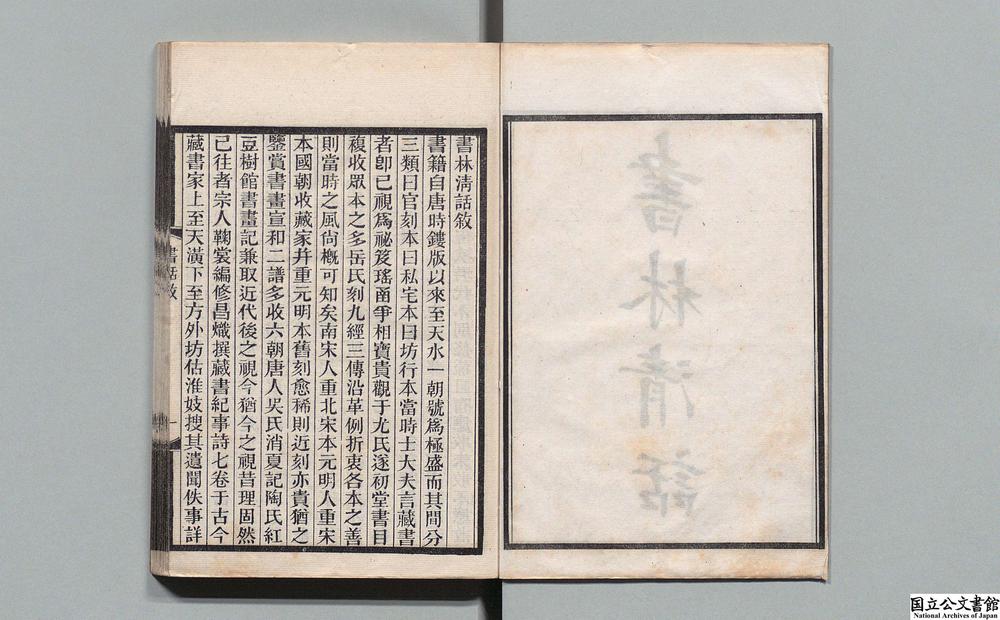 書林清話
書林清話敘
書籍自唐時鏤版以來至天水一朝號爲極盛而其間分
三類曰官刻本曰私宅本曰坊行本當時士大夫言藏書
者卽已視爲祕笈瑤函爭相寶貴觀于尤氏遂初堂書目
複收眾本之多岳氏刻九經三傳沿革例折衷各本之善
則當時之風尙槪可知矣南宋人重北宋本元明人重宋
本國朝收藏家幷重元明本舊刻愈稀則近刻亦貴猶之
鑒賞書畫宣和二譜多收六朝唐人吳氏消夏記陶氏紅
豆樹館書畫記兼取近代後之視今猶今之視昔理固然
已往者宗人鞠裳編修昌熾撰藏書紀事詩七卷于古今
藏書家上至天潢下至方外坊估淮妓搜其遺聞佚事詳
書話敘
一
国立公文書館
National Archives of Japan